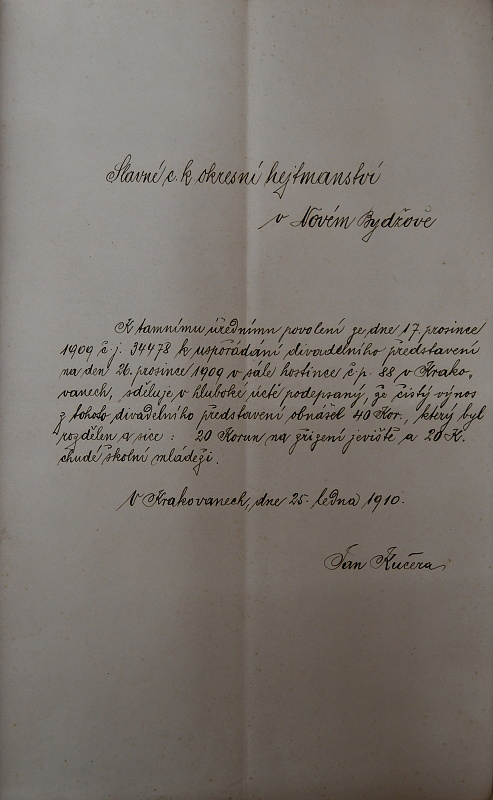 Slavné c. k. okresní hejtmanství
v Novém Bydžově
K tamnímu úřednímu povolení ze dne 17. prosince
1909 č. j. 34478 k uspořádání divadelního představení
na den 26. prosince 1909 v sále hostince č. p. 88 v Krako-
vanech, sděluje v hluboké úctě podepsaný, že čistý výnos
z tohoto divadelního představení obnášel 40 Kor., který byl
rozdělen a sice: 20 Korun na zřízení jeviště a 20 K.
chudé školní mládeži.
V Krakovanech, dne 25. ledna 1910.
Jan Kučera